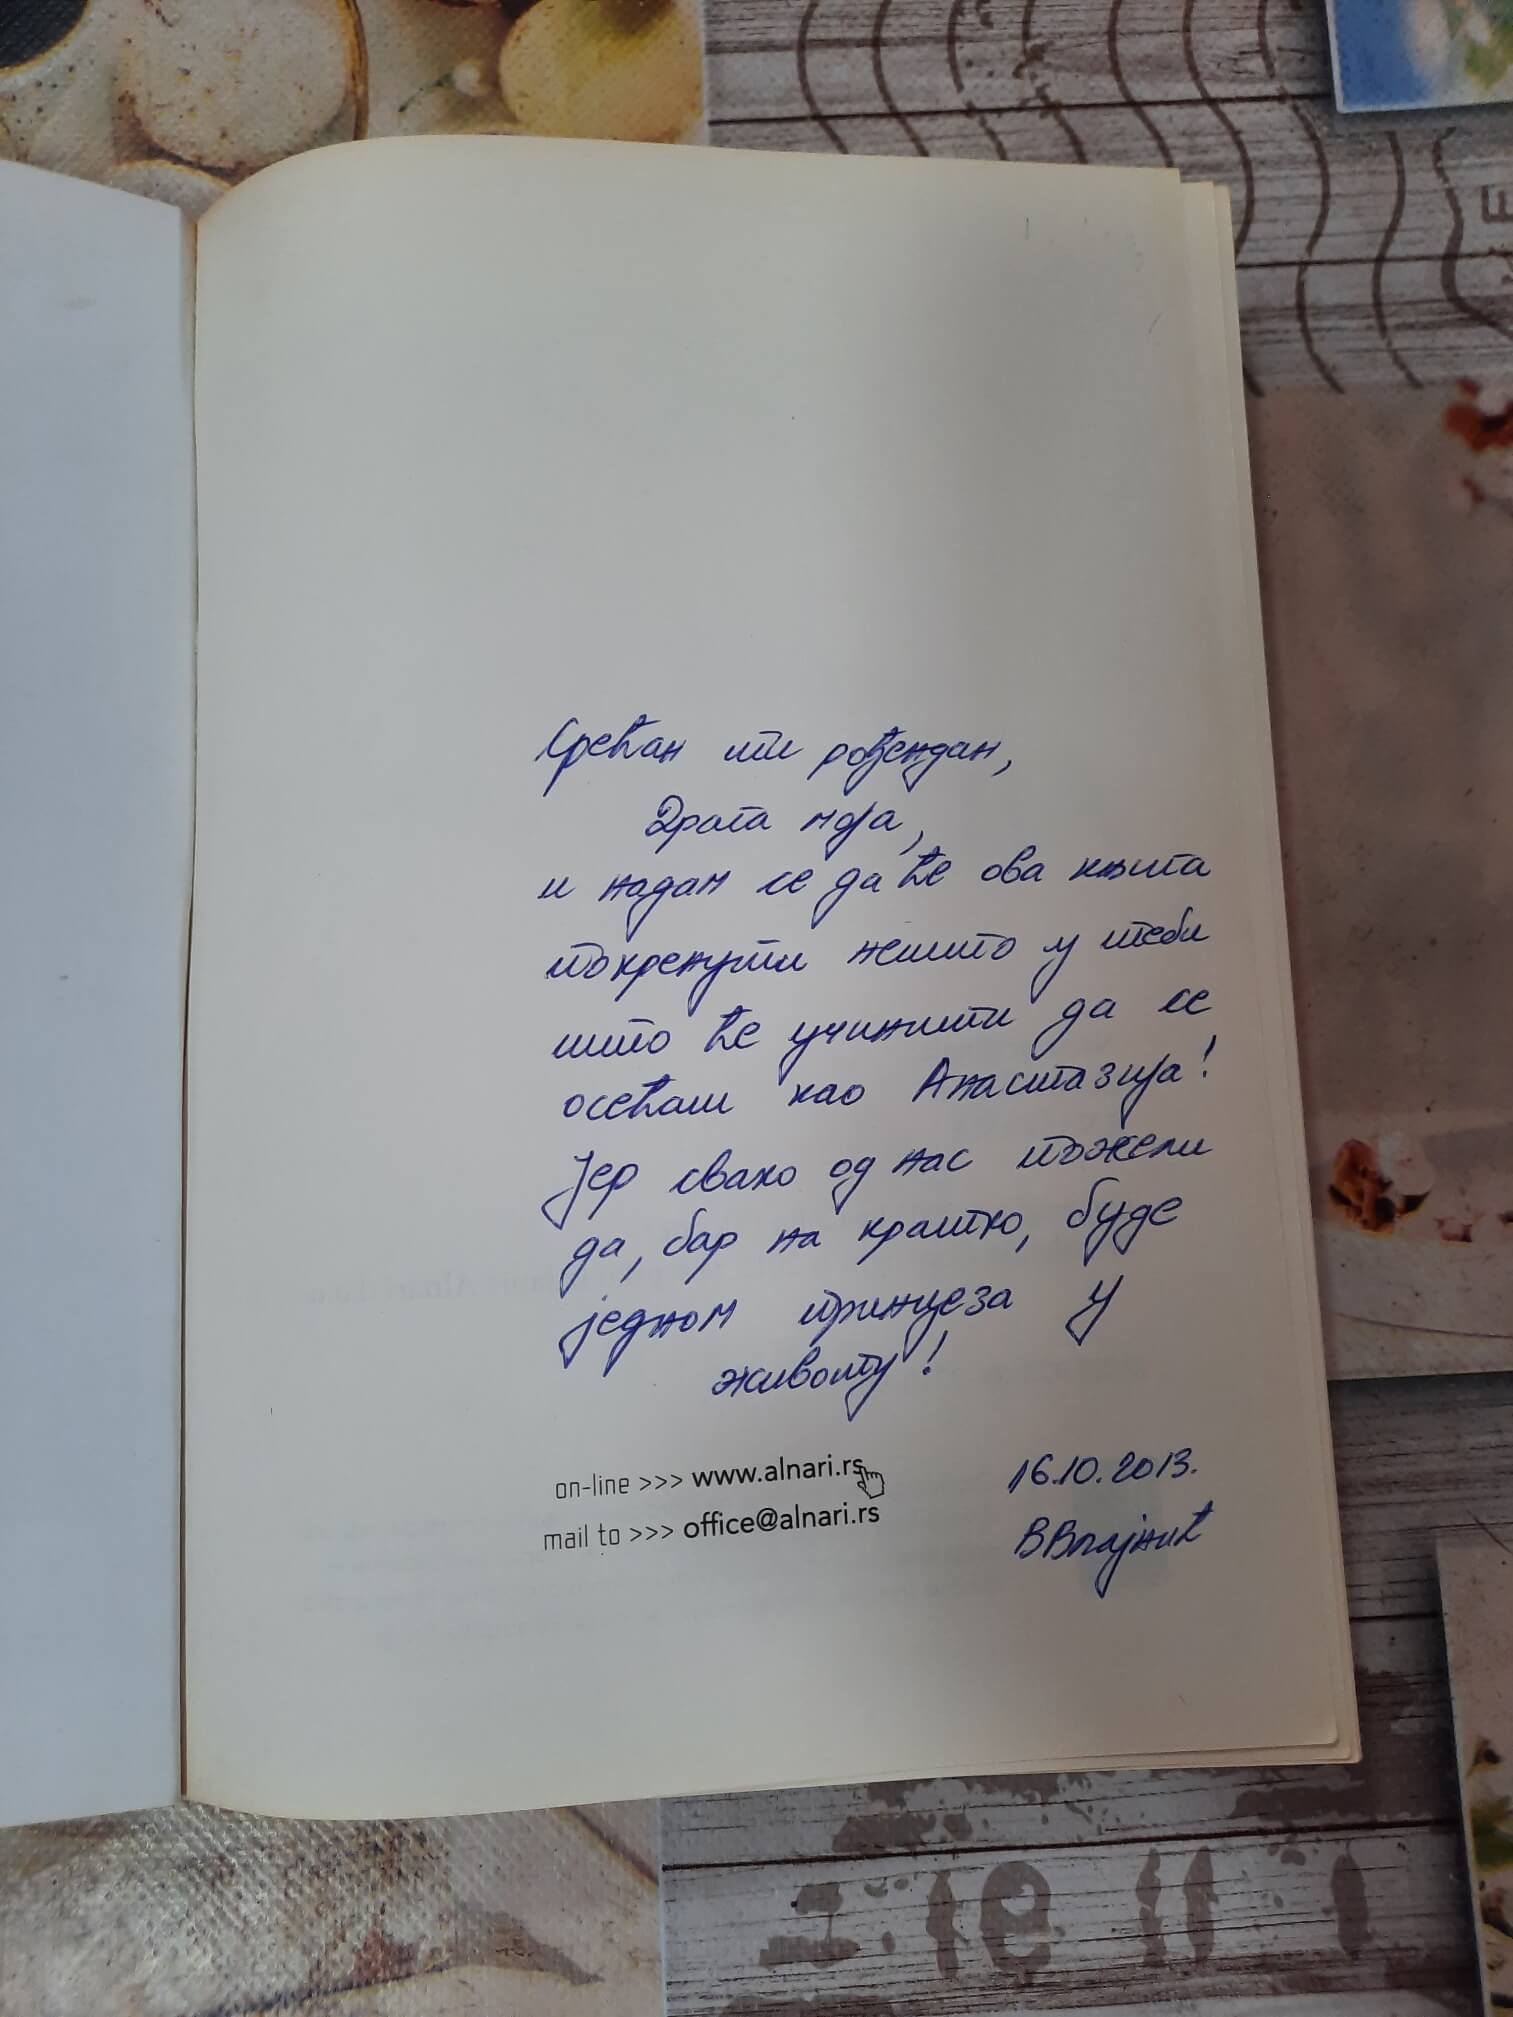 Срећан ти рођендан,
Драга моја,
и надам се да ће ова књига
покренути нешто у теби
што ће учинити да се
осећаш као Анастазија!
Јер свако од нас пожели
да, бар на кратко, буде
једном принцеза у
животу!
on-line >>> www.alnari.rs
mail to >>> office@alnari.rs
16.10.2013.
ВВлајнић